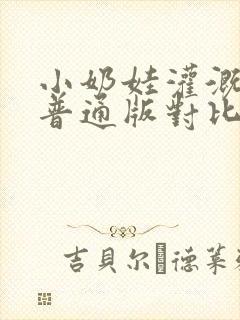 小奶娃灌溉
普通版對比
吉貝尔 德菓